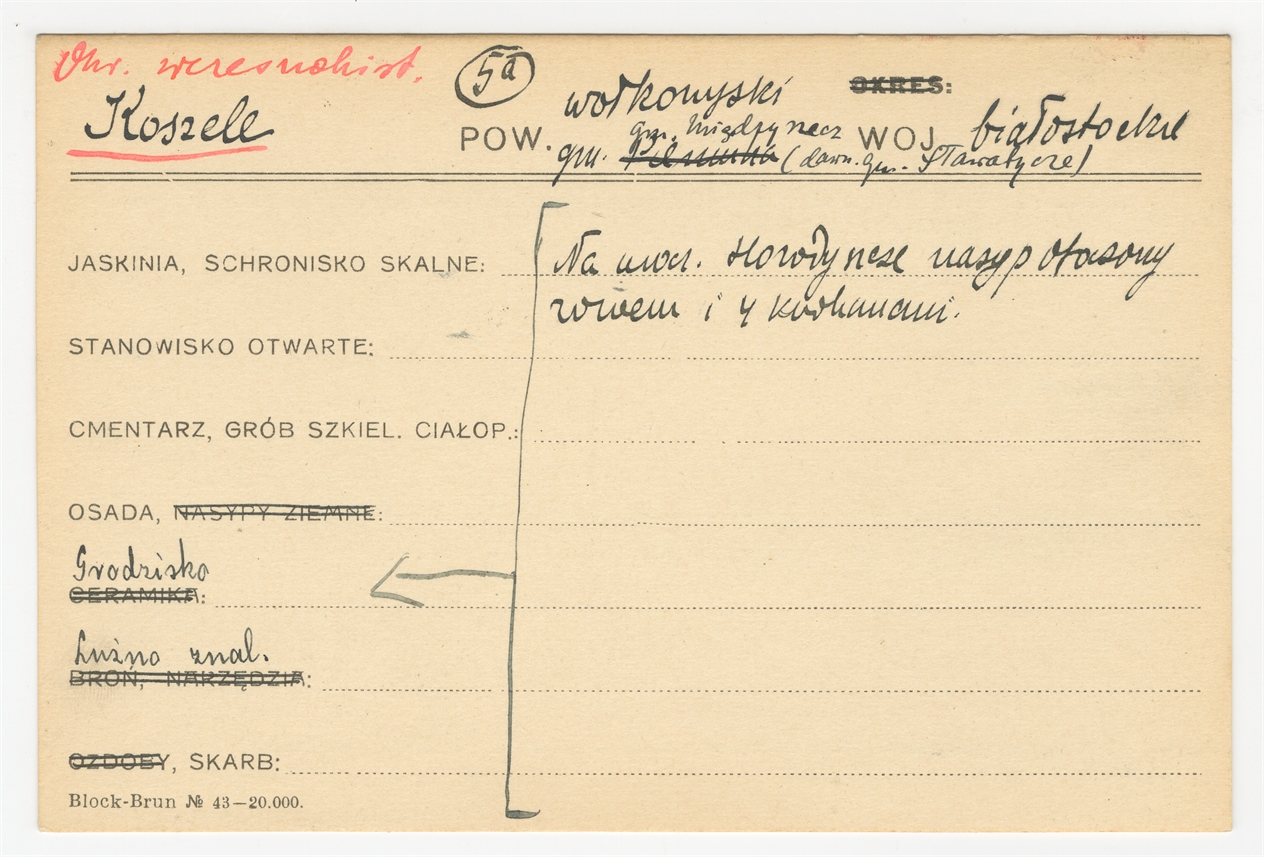 Okr. wczesnohist.
5a
Koszele
POW. wołkowyski
OKRES:
WOJ. białostockie
gm. Międzyrzecz
gm. (dawn. gm. Sławatycze)
JASKINIA, SCHRONISKO SKALNE: Na urocz. Horodyszcze nasyp otoczony
rowem i 4 kurhanami.
STANOWISKO OTWARTE:
CMENTARZ, GRÓB SZKIEL. CIAŁOP.:
OSADA, NASYPY ZIEMNE:
Grodzisko
CERAMIKA:
Luźno znal.
BROŃ, NARZĘDZIA:
OZDOBY, SKARB:
Block-Brun № 43—20.000.